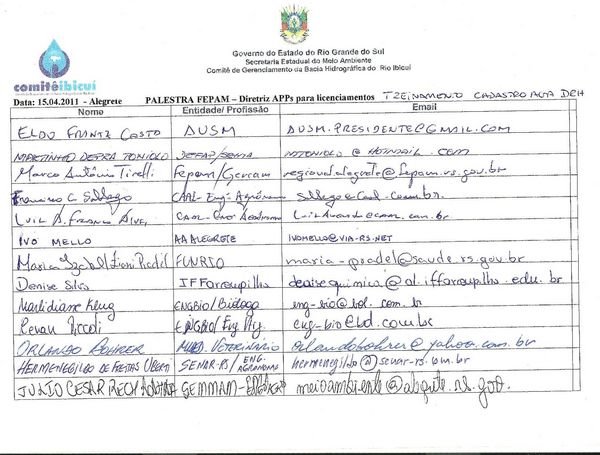 comitêibicuí
Governo do Estado do Rio Grande do Sul
Secretaria Estadual do Meio Ambiente
Comitê de Gerenciamento da Bacia Hidrográfica do Rio Ibicuí
Data: 15.04.2011 - Alegrete PALESTRA FEPAM – Diretriz APPs para licenciamentos TREINAMENTO CADASTRO ACTA DRH
Nome Entidade/ Profissão Email
ELDO FRANTZ COSTO AUSM AUSM.PRESIDENTE@GMAIL.COM
MARTINHO TONIOLO DEFAP/SEMA MTONIOLO @ HOTMAIL.COM
Marco Antônio Tirelli Fepam/Gercam regionalalegrete@fepam.rs.gov.br
Francisco C. Sallago CAAL-Eng. Agrônomo
Luiz A.
IVO MELLO AA ALEGRETE IVOMELLO@VIA-RS.NET
Maria Izabel FUNRIO @saude.rs.gov.br
Denise Silva IFFarroupilha denisequimica@al.iffarroupilha.edu.br
Marlidiane Klug ENGBIO/Bióloga eng-bio@bol.com.br
Renan Piccoli ENGBIO/Eng. eng-bio@bol.com.br
ORLANDO BOHRER MED. VETERINÁRIO orlandobohrer@yahoo.com.br
HERMENEGILDO DE FREITAS UBERTI SENAR-RS/ENG. AGRÔNOMO hermenegildo@senar-rs.com.br
JULIO CESAR RECH GEMMAM- meioambiente@alegrete.rs.gov.